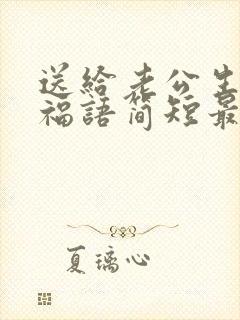 送給老公生
福語簡短最
夏璃心